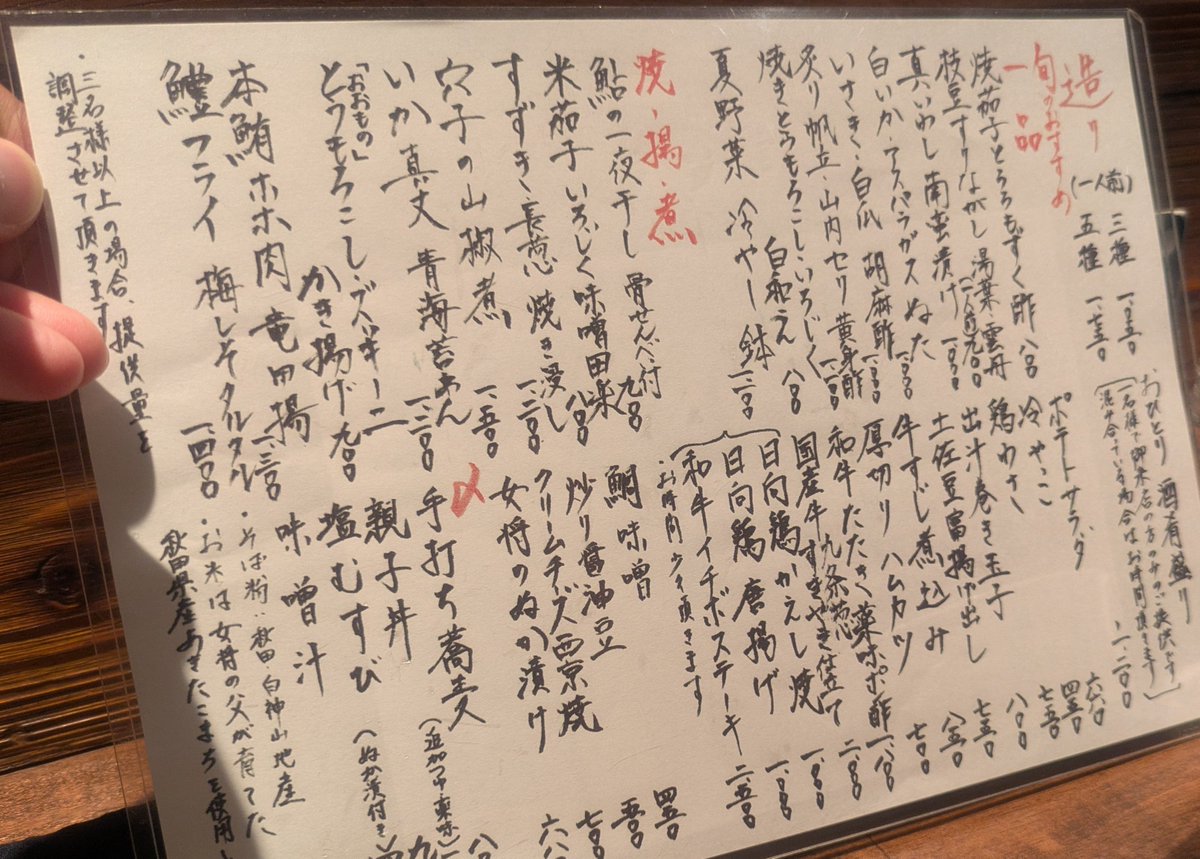 造り (一人前) 三種 一、〇五〇
五種 一、七五〇
旬のおすすめ
一品
焼茄子とろろもずく酢 八〇〇
枝豆すりながし 湯葉・雲丹
真いわし南蛮漬け
白いか・アスパラガス ぬた
いさき・白瓜 胡麻酢
炙り帆立・山内セリ 黄身酢
焼きとうもろこし・いろじく
白和え 八〇〇
夏野菜 冷やし鉢
焼・揚・煮
鮎の一夜干し 骨せんべい付 九〇〇
米茄子 いちじく味噌田楽 八〇〇
すずき・長葱 焼き浸し
穴子の山椒煮 一、一五〇
いか真丈 青海苔あん
「おおもの」
とうもろこし・ズッキーニ
かき揚げ 九〇〇
本鮪ホホ肉 竜田揚
鱧フライ 梅しそタルタル 一、四〇〇
・三名様以上の場合、提供量を
調整させて頂きます
おひとり 酒肴盛り 一、二〇〇
一名様で御来店の方のみのご提供です
混み合っている場合はお時間頂きます
ポテトサラダ 六六〇
冷やっこ 四五〇
鶏わさ 七五〇
出汁巻き玉子 八〇〇
土佐豆富揚げ出し 七五〇
牛すじ煮込み 八五〇
厚切り ハムカツ 七〇〇
和牛たたき 薬味ポン酢
国産牛すきやき仕立て 九条葱
日向鶏かえし焼
日向鶏 唐揚げ
和牛イチボステーキ
・お時間少々頂きます
鯛味噌 四五〇
炒り醤油豆 五〇〇
クリームチーズ西京焼 七〇〇
女将のぬか漬け 六八〇
〆
手打ち蕎麦
親子丼 (ぬか漬付き)
塩むすび
味噌汁
・そば粉：秋田・白神山地産
・お米は女将の父が育てた
秋田県産あきたこまちを使用し